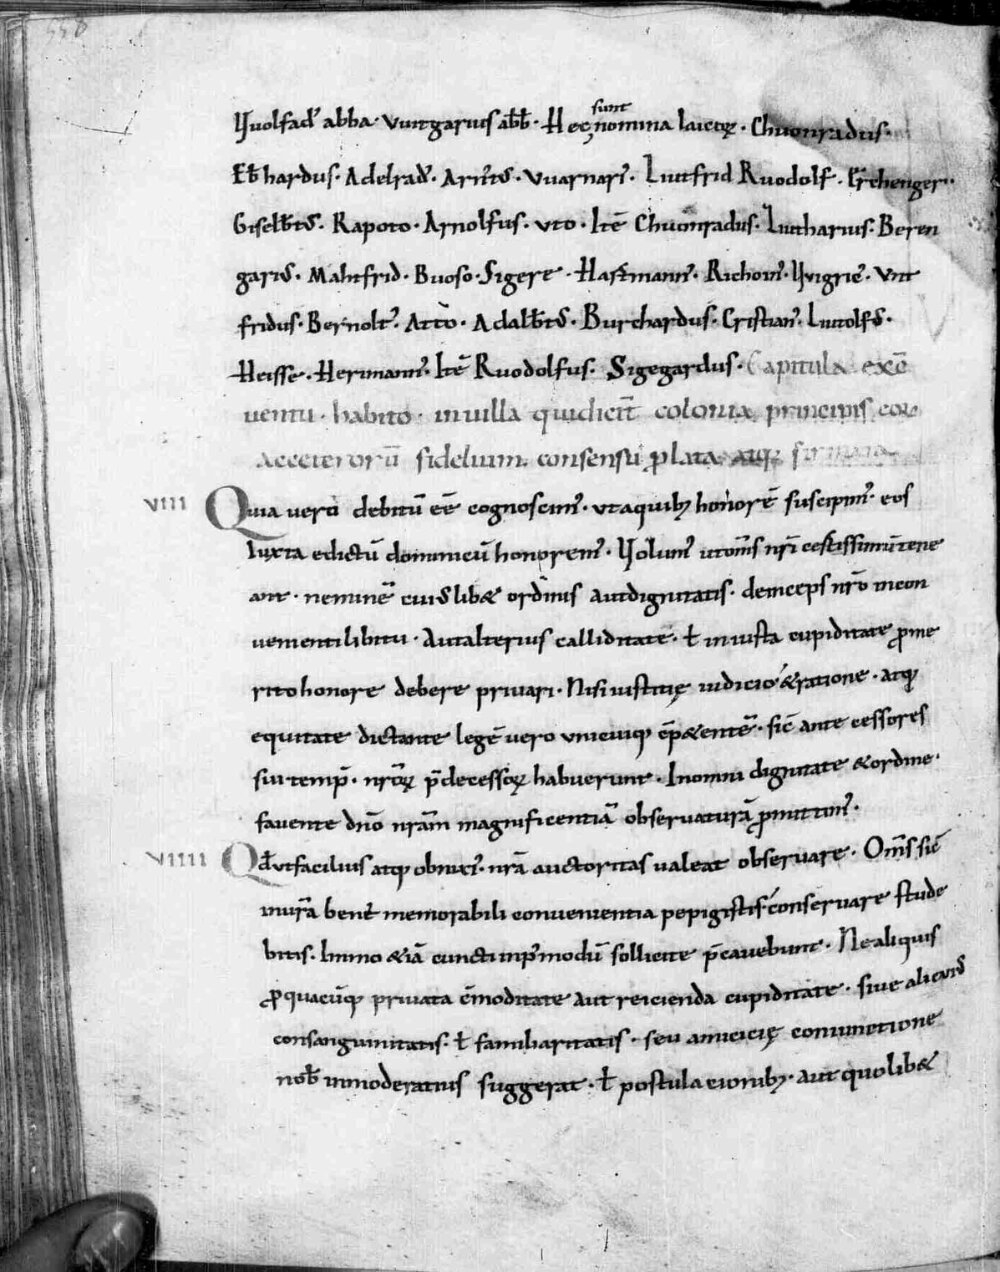 558
Uuolfad' abba· Vuitgarius abb̄· Hęc sunt nomina laicoꝝ· Chuonradus·
Eb̄hardus· Adelrad'· Arn̄tꝰ· Vuarnari'· Liutfrid Ruodolf'· Erchenger·
Giselb̄tꝰ· Rapoto· Arnolfus· Vto· Itē Chuonradus· Liutharius· Beren
gariꝰ· Mahtfrid· Buoso· Sigere· Hartmann'· Richoin'· Uuigric'· Vnt
fridus· Bernolt'· Atto· Adalb̄tꝰ· Burchardus· Cristian'· Liutolfꝰ·
Heisse· Herimann'· Itē Ruodolfus· Sigegardus· Capitula excē
ventu· habito· in uilla quę dicit̄ colonia principis coꝝ
ac ceterorū fidelium consensu p̄lata atq; firmata
VIII Quia vero debitū eē cognoscim'· vt a quib; honorē suscipim'· eos
Iuxta edictū dominicū honorem'· Uolum' ut om̄s nr̄i certissimū tene
ant· neminē cuiꝰlib& ordinis aut dignitatis· deinceps nr̄o incon
venienti libitu· Aut alterius calliditate· ł iniusta cupiditate p̄me
rito honore debere privari· Nisi iustitię iudicio & ratione· atq;
equitate dictante legē vero unicuiq; c̄p&entē· sic̄ antecessores
sui temp̄· nr̄oꝝ p̄decessoꝝ habuerunt· In omni dignitate & ordine·
favente dn̄o nr̄am magnificentiā observaturā p̄mittim'·
VIIII Qđ ut facilius atq; obnixi' nr̄a auctoritas valeat observare· Om̄s sic̄
in ur̄a bene memorabili convenientia pepigistis conservare stude
bitis· Immo &iā cuncti inp'modū sollicite p̄cavebunt· Ne aliquis
p̄ quacūq; privata c̄moditate aut reicienda cupiditate· sive alicuiꝰ
consanguinitatis· ł familiaritatis· seu amicicię coniunctione
nob̄ inmoderatius suggerat· ł postulacionib;· aut quolib&